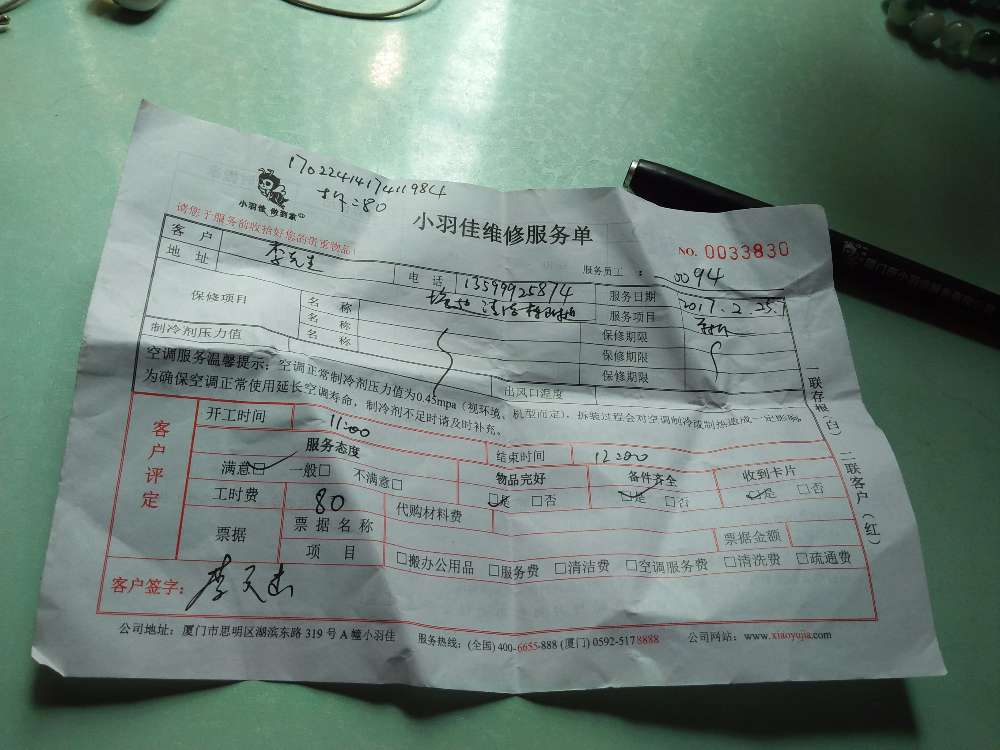 17022414174111984
小羽佳 做到家
小羽佳维修服务单
请您于服务前收拾好您的贵重物品!
NO. 0033830
服务员工: 0094
客户 李先生 电话 13599925874 服务日期 2017.2.25.
地址 服务项目
保修项目 名称 保修期限
名称 保修期限
名称 保修期限
制冷剂压力值 出风口温度
空调服务温馨提示:空调正常制冷剂压力值为0.45mpa(视环境、机型而定),拆装过程会对空调制冷或制热造成一定影响,
为确保空调正常使用延长空调寿命,制冷剂不足时请及时补充。
客户评定
开工时间 11:00 结束时间 12:00
服务态度 物品完好 备件齐全 收到卡片
满意□ 一般□ 不满意□ □是 □否 □是 □否 □是 □否
工时费 80 代购材料费
票据 票据名称 票据金额
项目 □搬办公用品 □服务费 □清洁费 □空调服务费 □清洗费 □疏通费
客户签字:
一联存根(白) 二联客户(红)
公司地址:厦门市思明区湖滨东路319号A幢小羽佳 服务热线:(全国)400-6655-888 (厦门)0592-5178888 公司网站:www.xiaoyujia.com